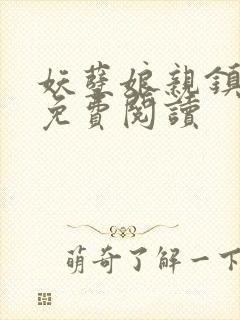 妖孽娘親鎮
免費閱讀
萌奇了解一下